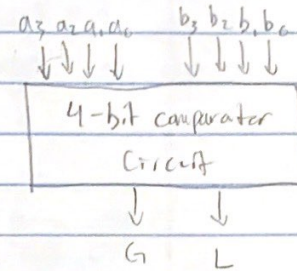 a3 a2 a1 a0 b3 b2 b1 b0
4-bit comparator
Circuit
G L